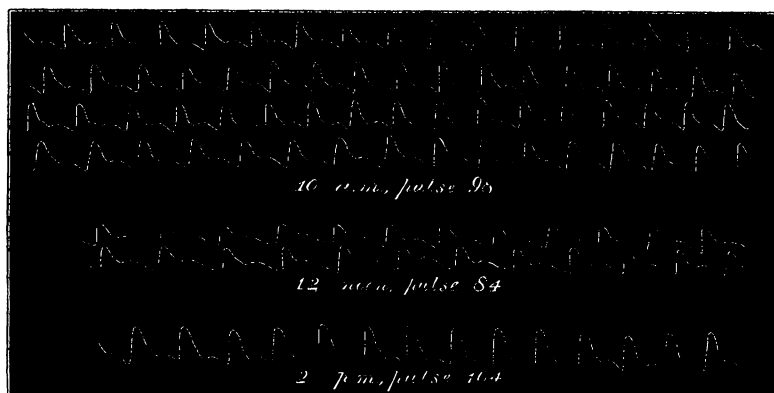 10 a.m, pulse
12 noon, pulse 84
2 p.m, pulse 104